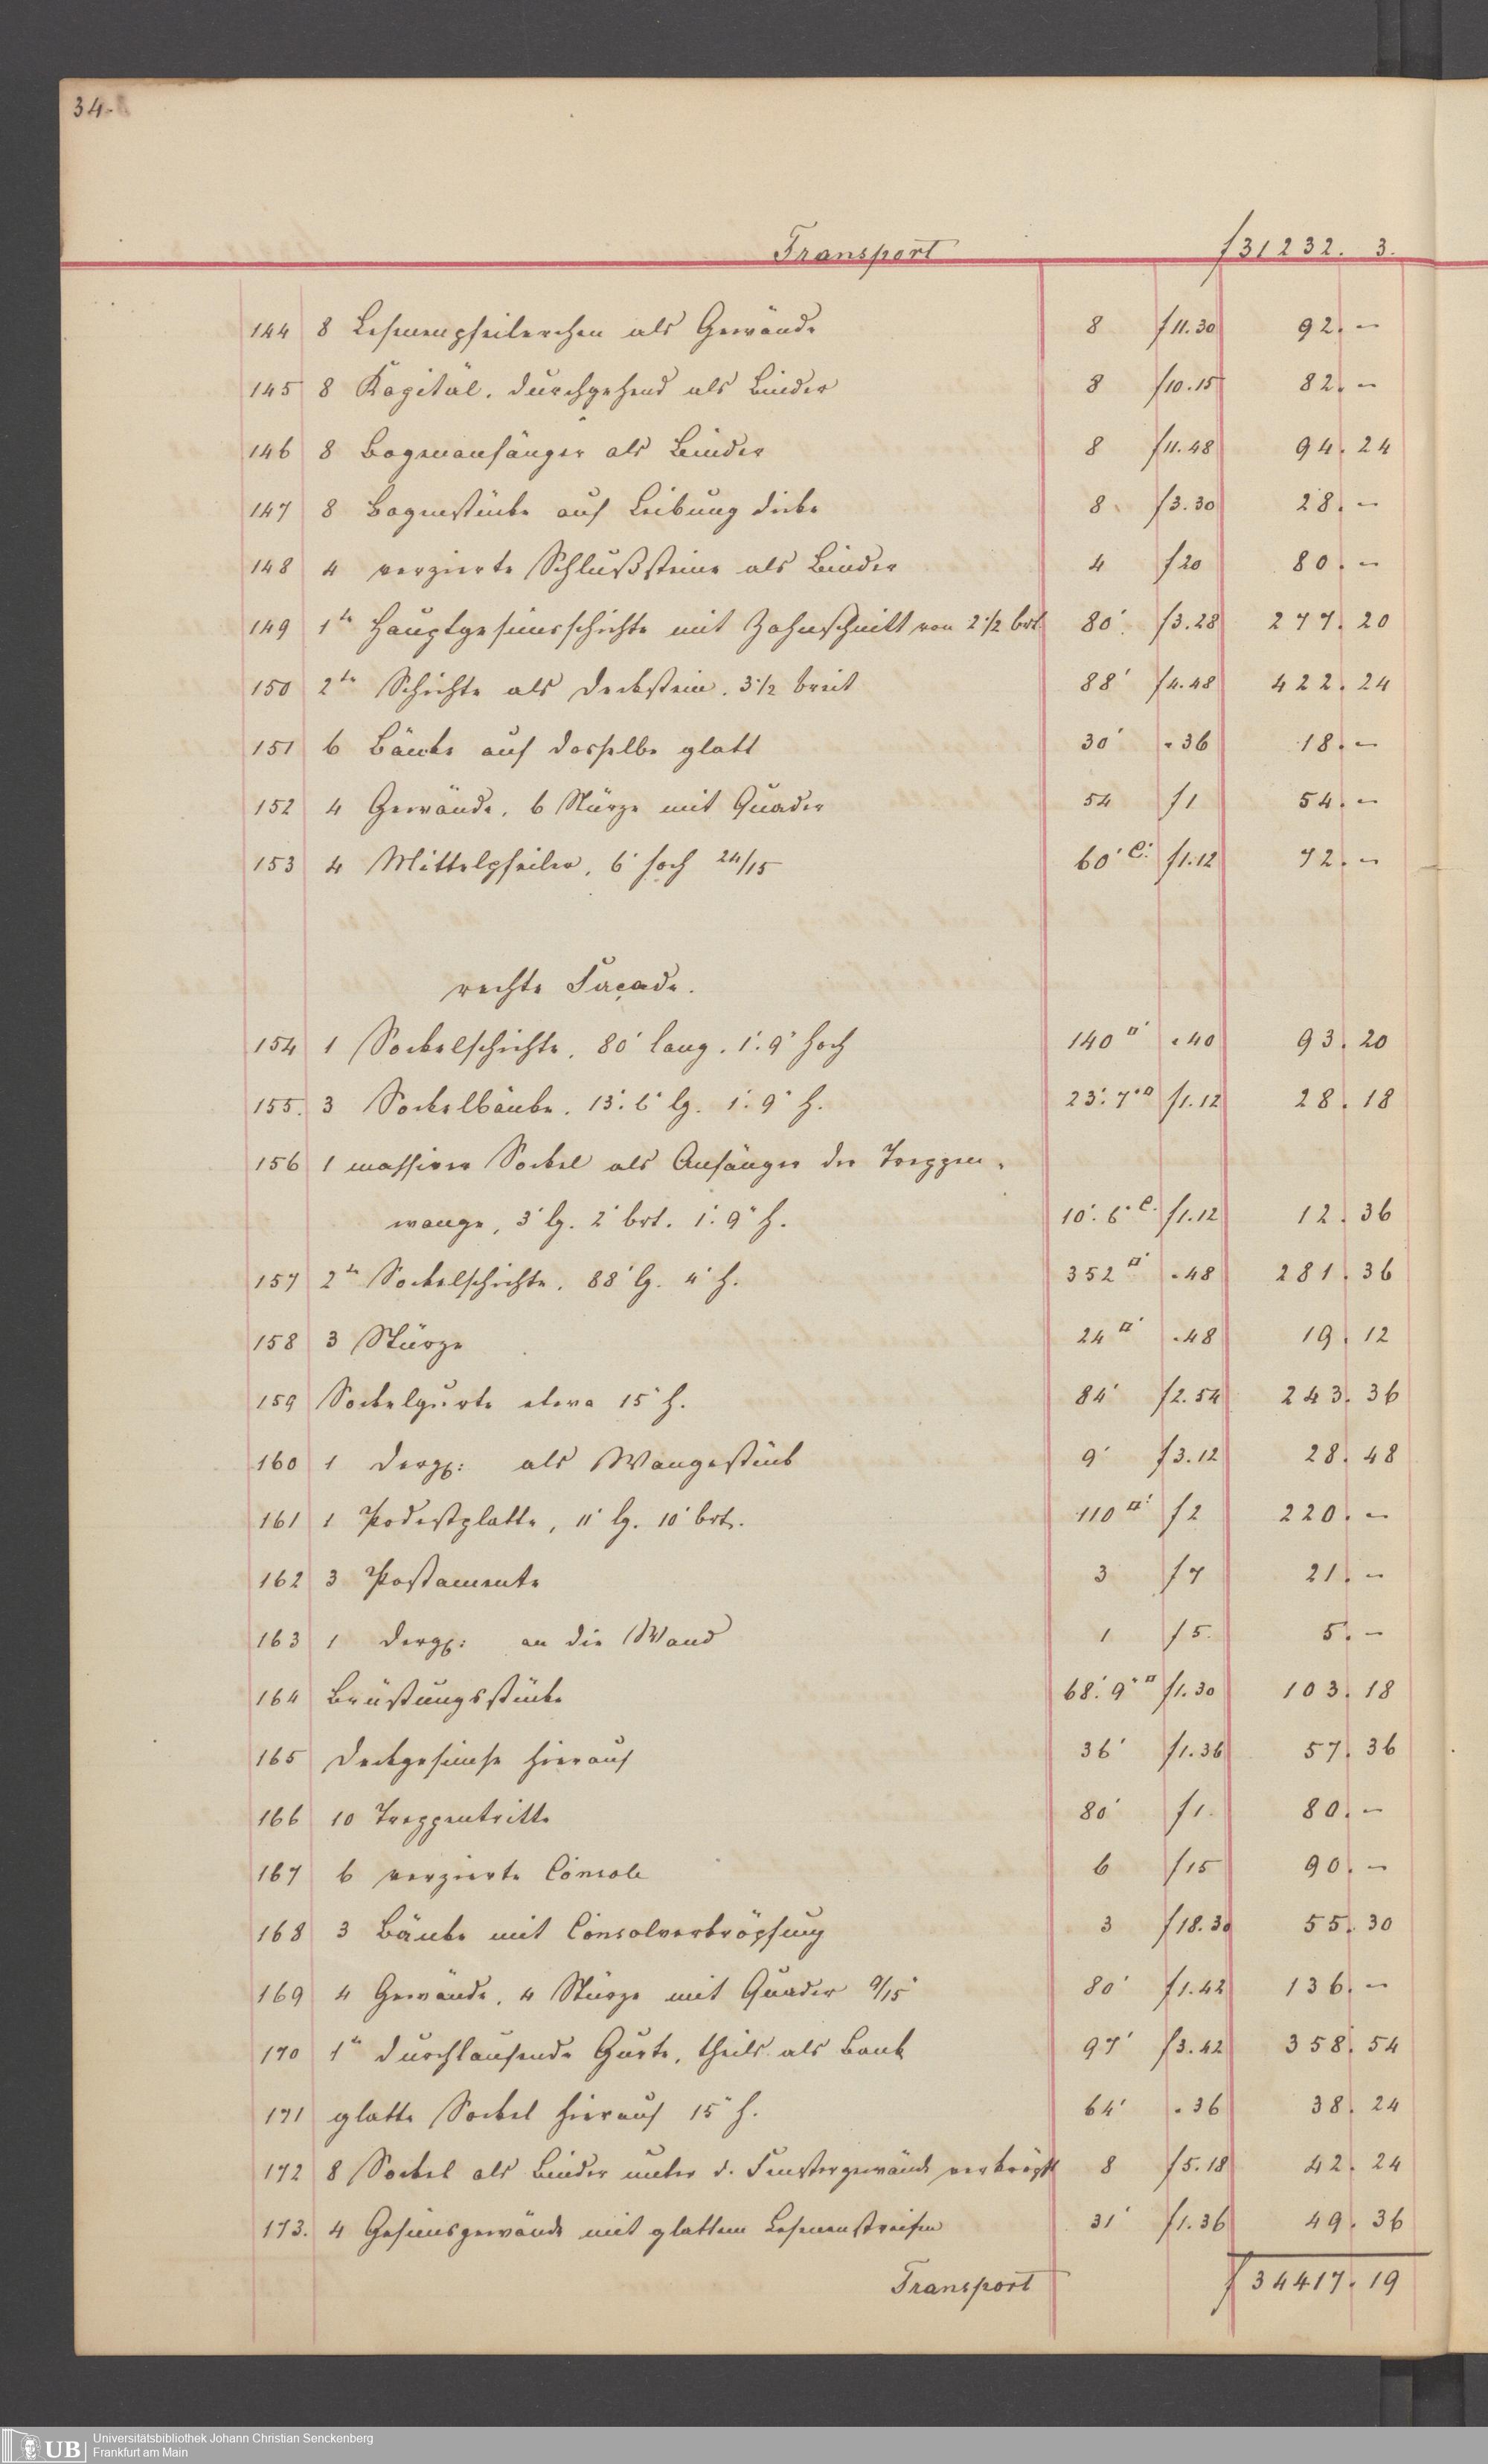 34.
Transport f 31232. 3.
144 8 Lesenenpfeilerchen als Gewände 8 f 11.30 92. —
145 8 Kapitäl, durchgehend als Binder 8 f 10.15 82. —
146 8 Bogenanfänger als Binder 8 f 11.48 94. 24
147 8 Bogenstücke auf Leibung dicke 8. f 3.30 28. —
148 4 verzierte Schlußsteine als Binder 4 f 20 80. —
149 1te Hauptgesimsschichte mit Zahnschnitt von 2 1/2 brt. 80' f 3.28 277. 20
150 2te Schichte als Deckstein. 3 1/2 breit 88' f 4.48 422. 24
151 6 Bänke auf dasselbe glatt 30' " 36 18. —
152 4 Gewände, 6 Stürze mit Quader 54 f 1 54. —
153 4 Mittelpfeiler, 6' hoch 24/15 60' C: f 1.12 72. —
rechte Façade.
154 1 Sockelschichte, 80' lang. 1'. 9" hoch 140 □' " 40 93. 20
155. 3 Sockelbänke. 13'. 6" lg. 1'. 9" h. 23'. 7" □ f 1.12 28. 18
156 1 massiver Sockel als Anfänger der Treppen-
wange, 3' lg. 2' brt. 1'. 9" h. 10'. 6" C. f 1.12 12. 36
157 2te Sockelschichte, 88' lg. 4' h. 352 □' " 48 281. 36
158 3 Stürze 24 □' " 48 19. 12
159 Sockelgurte etwa 15" h. 84' f 2.54 243. 36
160 1 dergl: als Wangestück 9' f 3.12 28. 48
161 1 Podestplatte, 11' lg. 10' brt. 110 □' f 2 220. —
162 3 Postamente 3 f 7 21. —
163 1 dergl: an die Wand 1 f 5. 5. —
164 Brüstungsstücke 68'. 9" □ f 1.30 103. 18
165 Deckgesimse hierauf 36' f 1.36 57. 36
166 10 Treppentritte 80' f 1. 80. —
167 6 verzierte Console 6 f 15 90. —
168 3 Bänke mit Consolverkröpfung 3 f 18.30 55. 30
169 4 Gewände, 4 Stürze mit Quader 9/15" 80' f 1.42 136. —
170 1te durchlaufende Gurte, theils als Bank 97' f 3.42 358. 54
171 glatte Sockel hierauf 15" h. 64' " 36 38. 24
172 8 Sockel als Binder unter d. Fenstergewände verkröpft 8 f 5.18 42. 24
173. 4 Gesimsgewände mit glattem Lesenenstreifen 31' f 1.36 49. 36
Transport f 34417. 19
UB Universitätsbibliothek Johann Christian Senckenberg
Frankfurt am Main